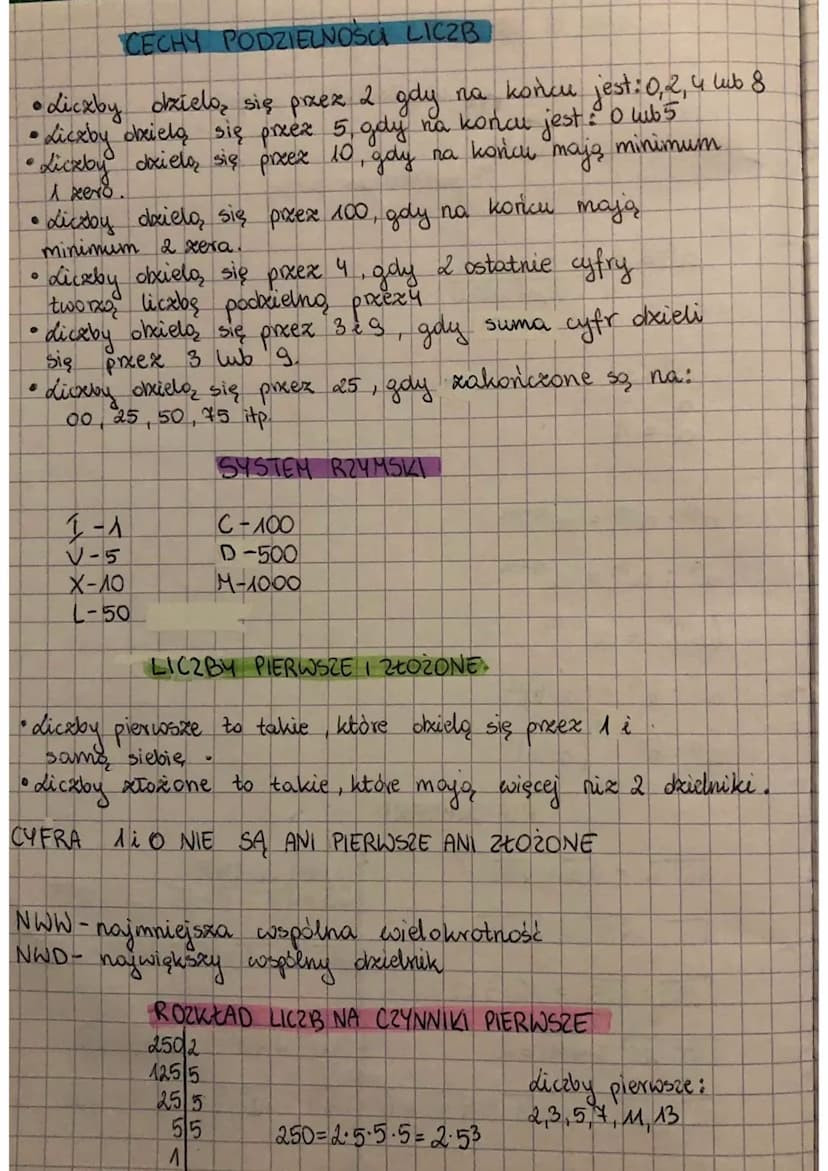 CECHY PODZIELNOŚCI LICZB
• Liczby dzielą się przez 2 gdy na końcu jest: 0,2,4 lub 8
• Liczby dzielą się przez 5, gdy na końcu jest: 0 lub 5
• Liczby dzielą się przez 10, gdy na końcu mają minimum
1 zero.
• Liczby dzielą się przez 100, gdy na końcu mają
minimum 2 zera.
• Liczby dzielą się przez 4, gdy 2 ostatnie cyfry
tworzą liczbę podzielną przez 4
• Liczby dzielą się przez 3 i 9, gdy suma cyfr dzieli
się przez 3 lub 9.
• Liczby dzielą się przez 25, gdy zakończone są na:
00, 25, 50, 75 itp.
SYSTEM RZYMSKI
I - 1 C - 100
V - 5 D - 500
X - 10 M - 1000
L - 50
LICZBY PIERWSZE I ZŁOŻONE
• Liczby pierwsze to takie, które dzielą się przez 1 i
samą siebię.
• Liczby złożone to takie, które mają więcej niż 2 dzielniki.
CYFRA 1 i 0 NIE SĄ ANI PIERWSZE ANI ZŁOŻONE
NWW - najmniejsza wspólna wielokrotność
NWD - największy wspólny dzielnik
ROZKŁAD LICZB NA CZYNNIKI PIERWSZE
250|2
125|5
25|5
5|5
1|
250 = 2·5·5·5 = 2·5³
Liczby pierwsze:
2,3,5,7,11,13